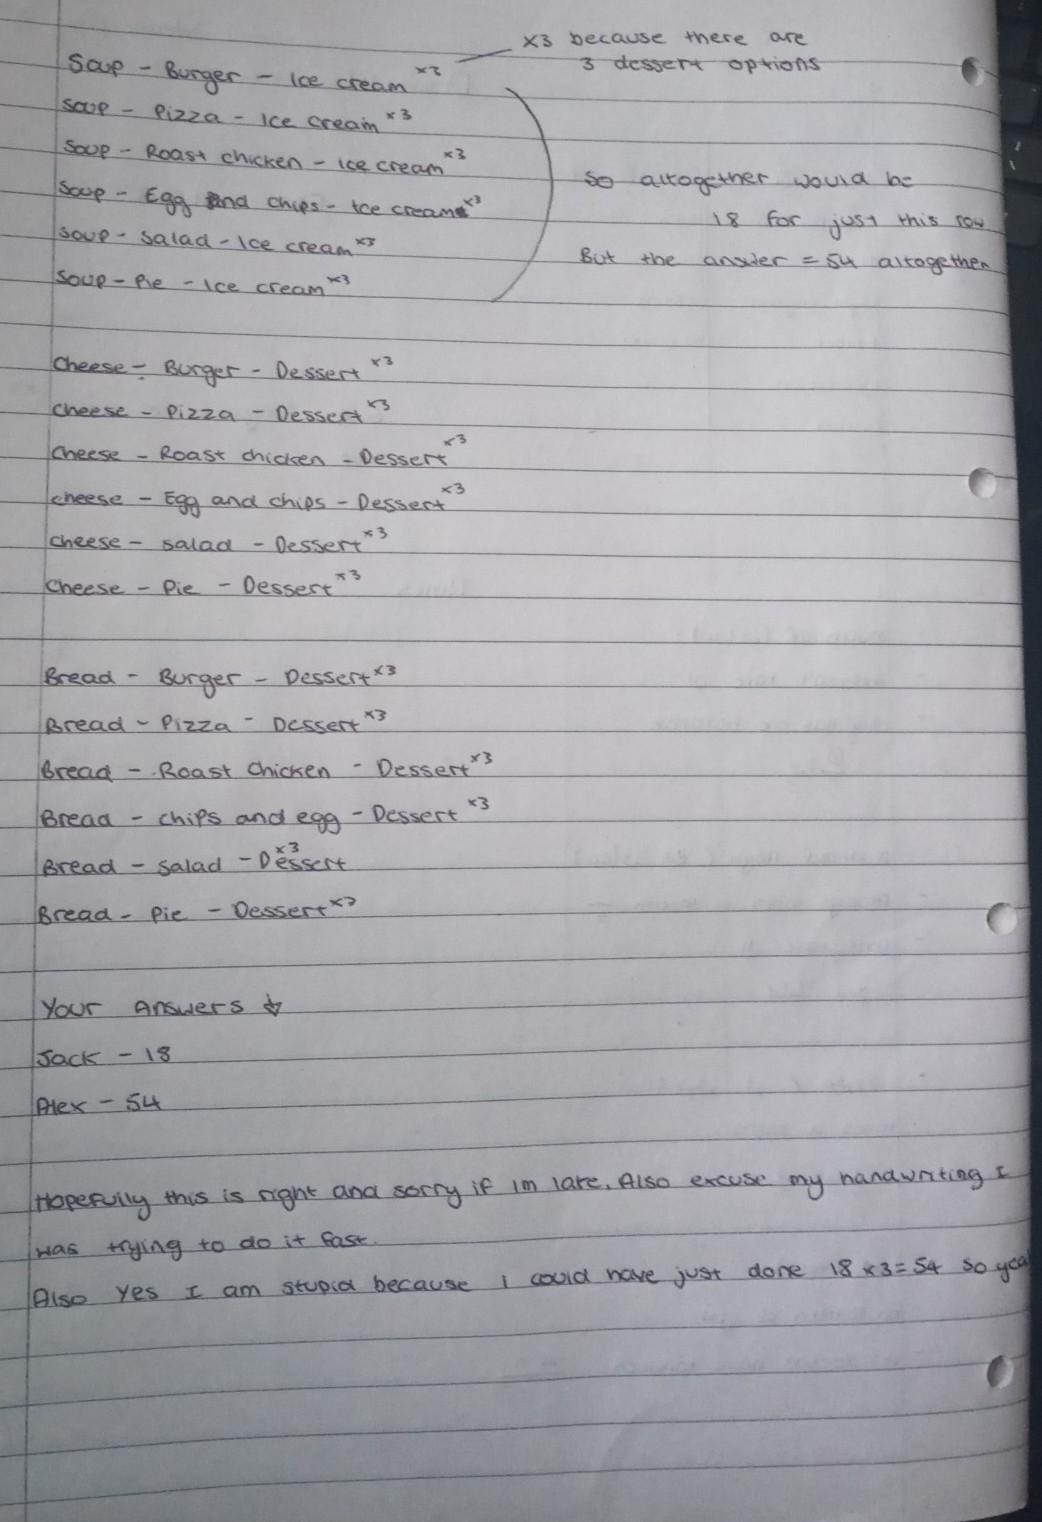 x3 because there are
3 dessert options
Soup - Burger - Ice cream x3
Soup - Pizza - Ice cream x3
Soup - Roast chicken - Ice cream x3
Soup - Egg and chips - Ice cream x3
Soup - Salad - Ice cream x3
Soup - Pie - Ice cream x3
So altogether would be
18 for just this row
But the answer = 54 altogether
Cheese - Burger - Dessert x3
Cheese - Pizza - Dessert x3
Cheese - Roast chicken - Dessert x3
cheese - Egg and chips - Dessert x3
cheese - salad - Dessert x3
Cheese - Pie - Dessert x3
Bread - Burger - Dessert x3
Bread - Pizza - Dessert x3
Bread - Roast Chicken - Dessert x3
Bread - chips and egg - Dessert x3
Bread - salad - Dessert x3
Bread - Pie - Dessert x3
Your Answers ↓
Jack - 18
Alex - 54
Hopefully this is right and sorry if im late. Also excuse my handwriting I
was trying to do it fast.
Also Yes I am stupid because i could have just done 18 x 3 = 54 so yea